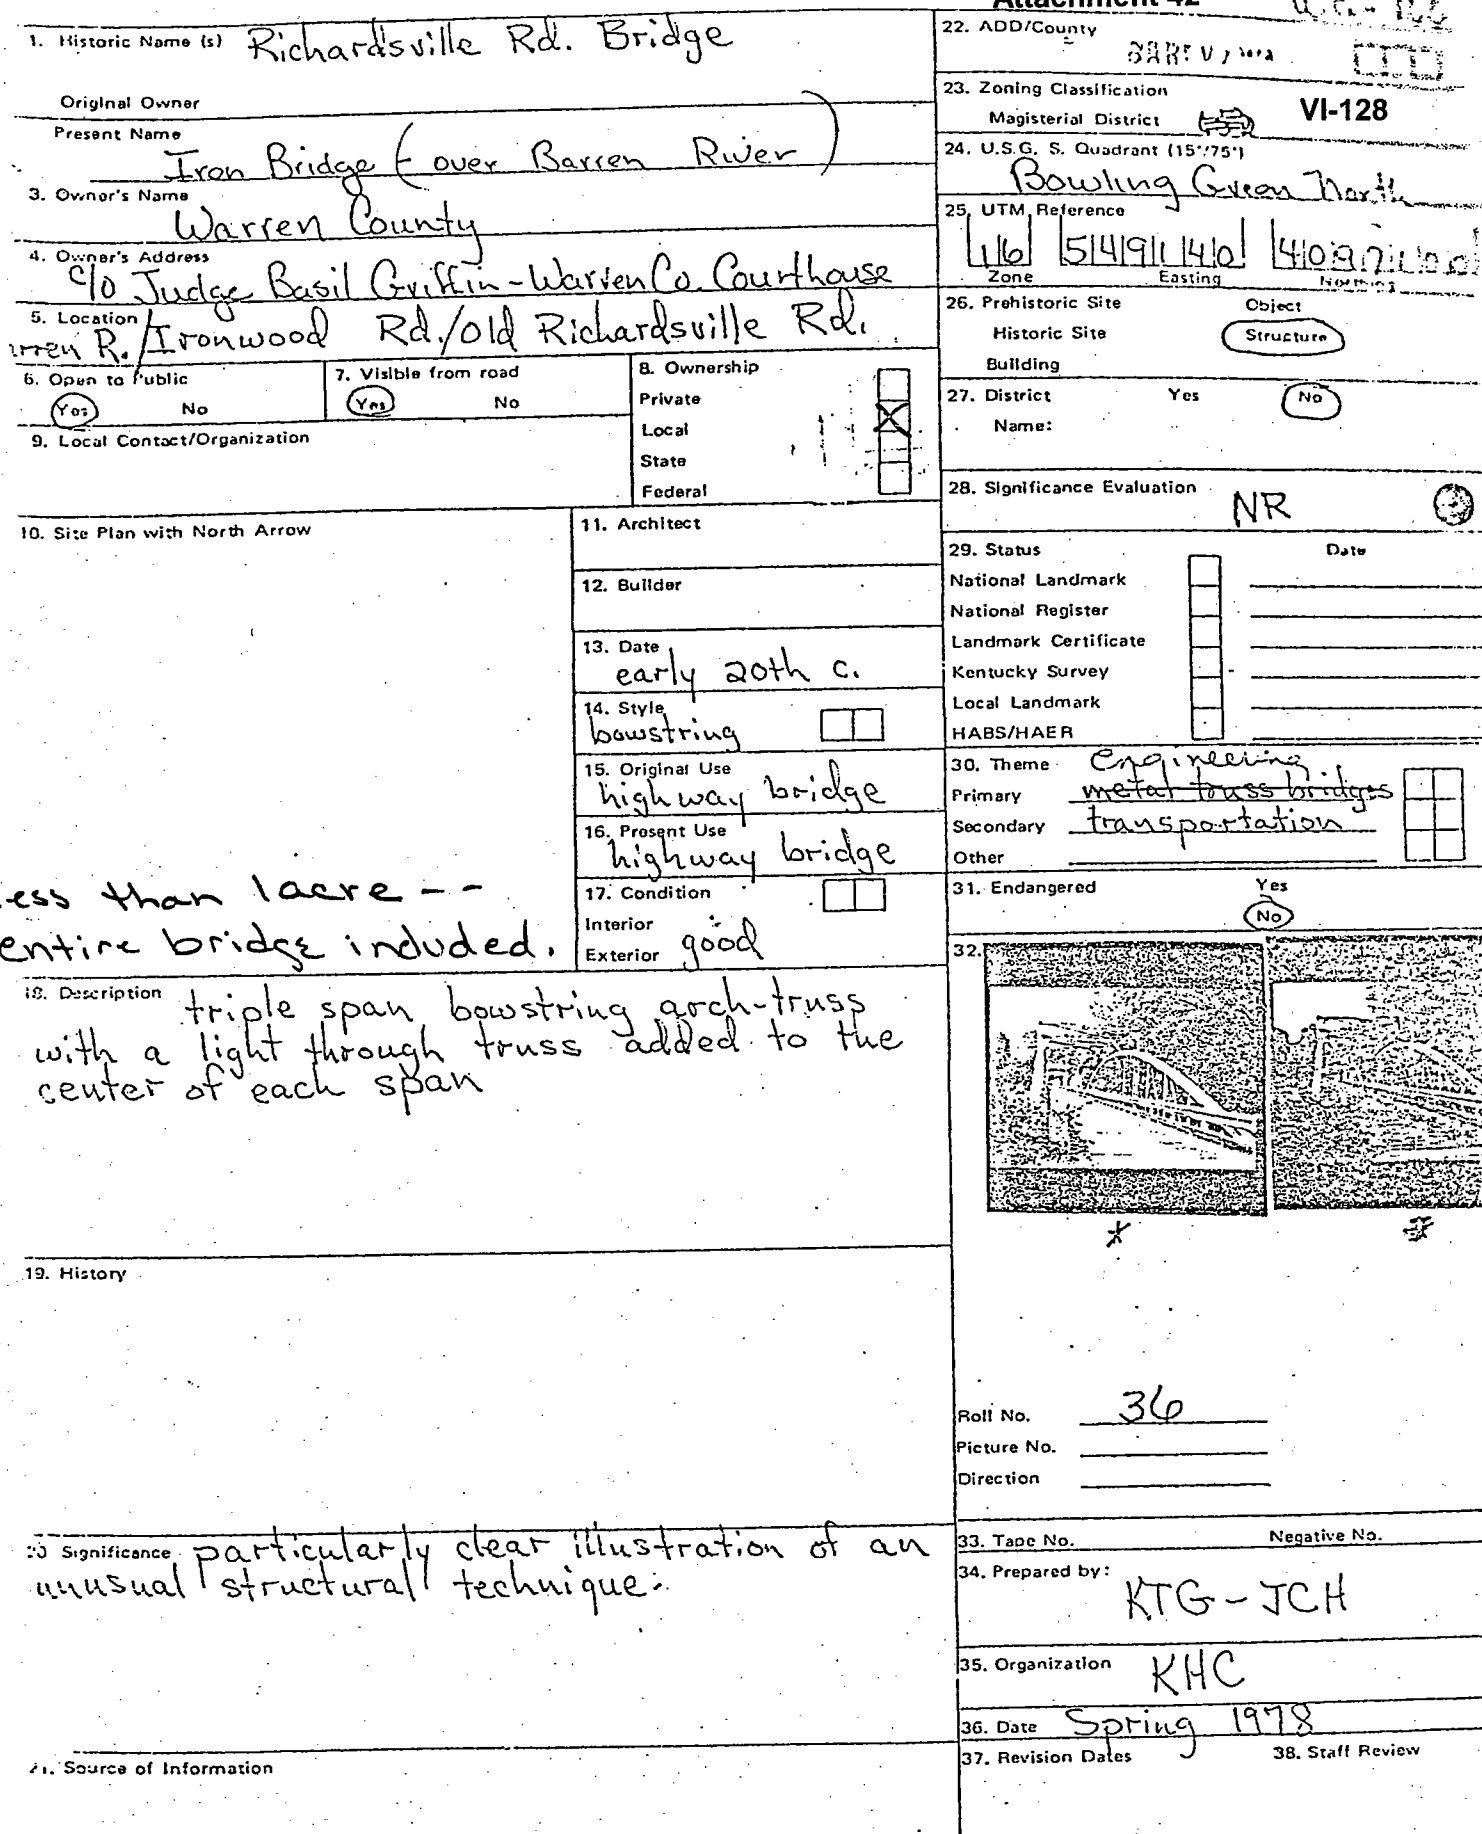 Attachment 42
1. Historic Name (s) Richardsville Rd. Bridge
Original Owner
Present Name
Iron Bridge (over Barren River)
3. Owner's Name
Warren County
4. Owner's Address
c/o Judge Basil Griffin - Warren Co. Courthouse
5. Location
R./Ironwood Rd./old Richardsville Rd.
6. Open to Public
Yes No
7. Visible from road
Yes No
8. Ownership
Private
Local
State
Federal
9. Local Contact/Organization
10. Site Plan with North Arrow
less than 1 acre --
entire bridge included.
11. Architect
12. Builder
13. Date
early 20th c.
14. Style
bowstring
15. Original Use
highway bridge
16. Present Use
highway bridge
17. Condition
Interior
Exterior good
18. Description triple span bowstring arch-truss
with a light through truss added to the
center of each span
19. History
20 Significance particularly clear illustration of an
unusual structural technique.
21. Source of Information
22. ADD/County
23. Zoning Classification
Magisterial District
VI-128
24. U.S.G. S. Quadrant (15°/75°)
Bowling Green North
25. UTM Reference
16 549140
Zone Easting Northing
26. Prehistoric Site Object
Historic Site Structure
Building
27. District Yes No
Name:
28. Significance Evaluation NR
29. Status Date
National Landmark
National Register
Landmark Certificate
Kentucky Survey
Local Landmark
HABS/HAER
30. Theme engineering
Primary metal truss bridges
Secondary transportation
Other
31. Endangered Yes
No
32.
Roll No. 36
Picture No.
Direction
33. Tape No. Negative No.
34. Prepared by:
KTG-JCH
35. Organization KHC
36. Date Spring 1978
37. Revision Dates 38. Staff Review